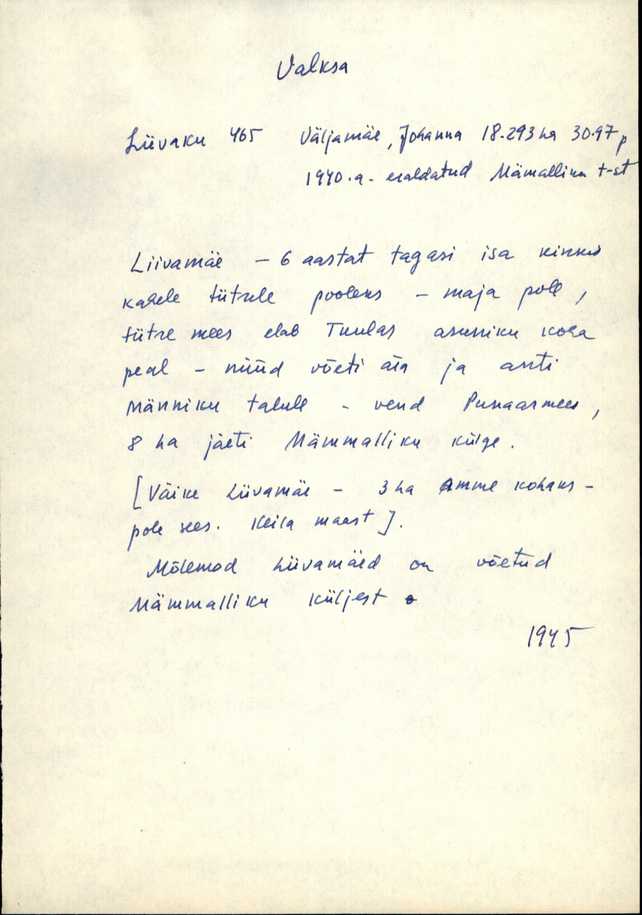 Valksa
Liivaku 465 Väljamäe, Johanna 18.293 ha 30.97 p
1940.a. eraldatud Mämalliku t-st
Liivamäe – 6 aastat tagasi isa kinkis
kahele tütrele pooleks – maja pole,
tütre mees elab Tuulas asuniku koha
peal – nüüd võeti ära ja anti
Männiku talule – vend Punaarmees,
8 ha jäeti Mämmalliku külge.
[Väike Liivamäe – 3 ha Amme kohaks –
pole sees. Keila maast].
Mõlemad Liivamäed on võetud
Mämmalliku küljest
1945